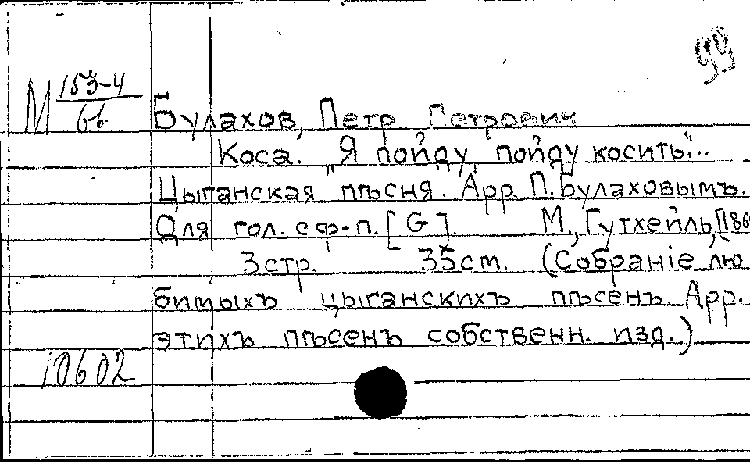 99
М 153-4
66
Булахов, Петр Петрович
Коса. "Я пойду, пойду косить"...
Цыганская пѣсня. Арр. П. Булаховымъ.
Для гол. с ф-п. [G] М., Гутхейль,
3 стр. 35 см. (Собраніе лю
бимыхъ цыганскихъ пѣсенъ. Арр.
этихъ пѣсенъ собственн. изд.)
10602